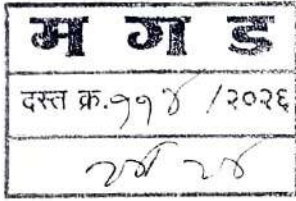 म ग ड
दस्त क्र.११४ /२०२६
२४